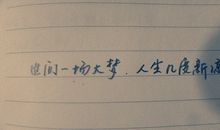 世间一场大梦，人生几度新凉